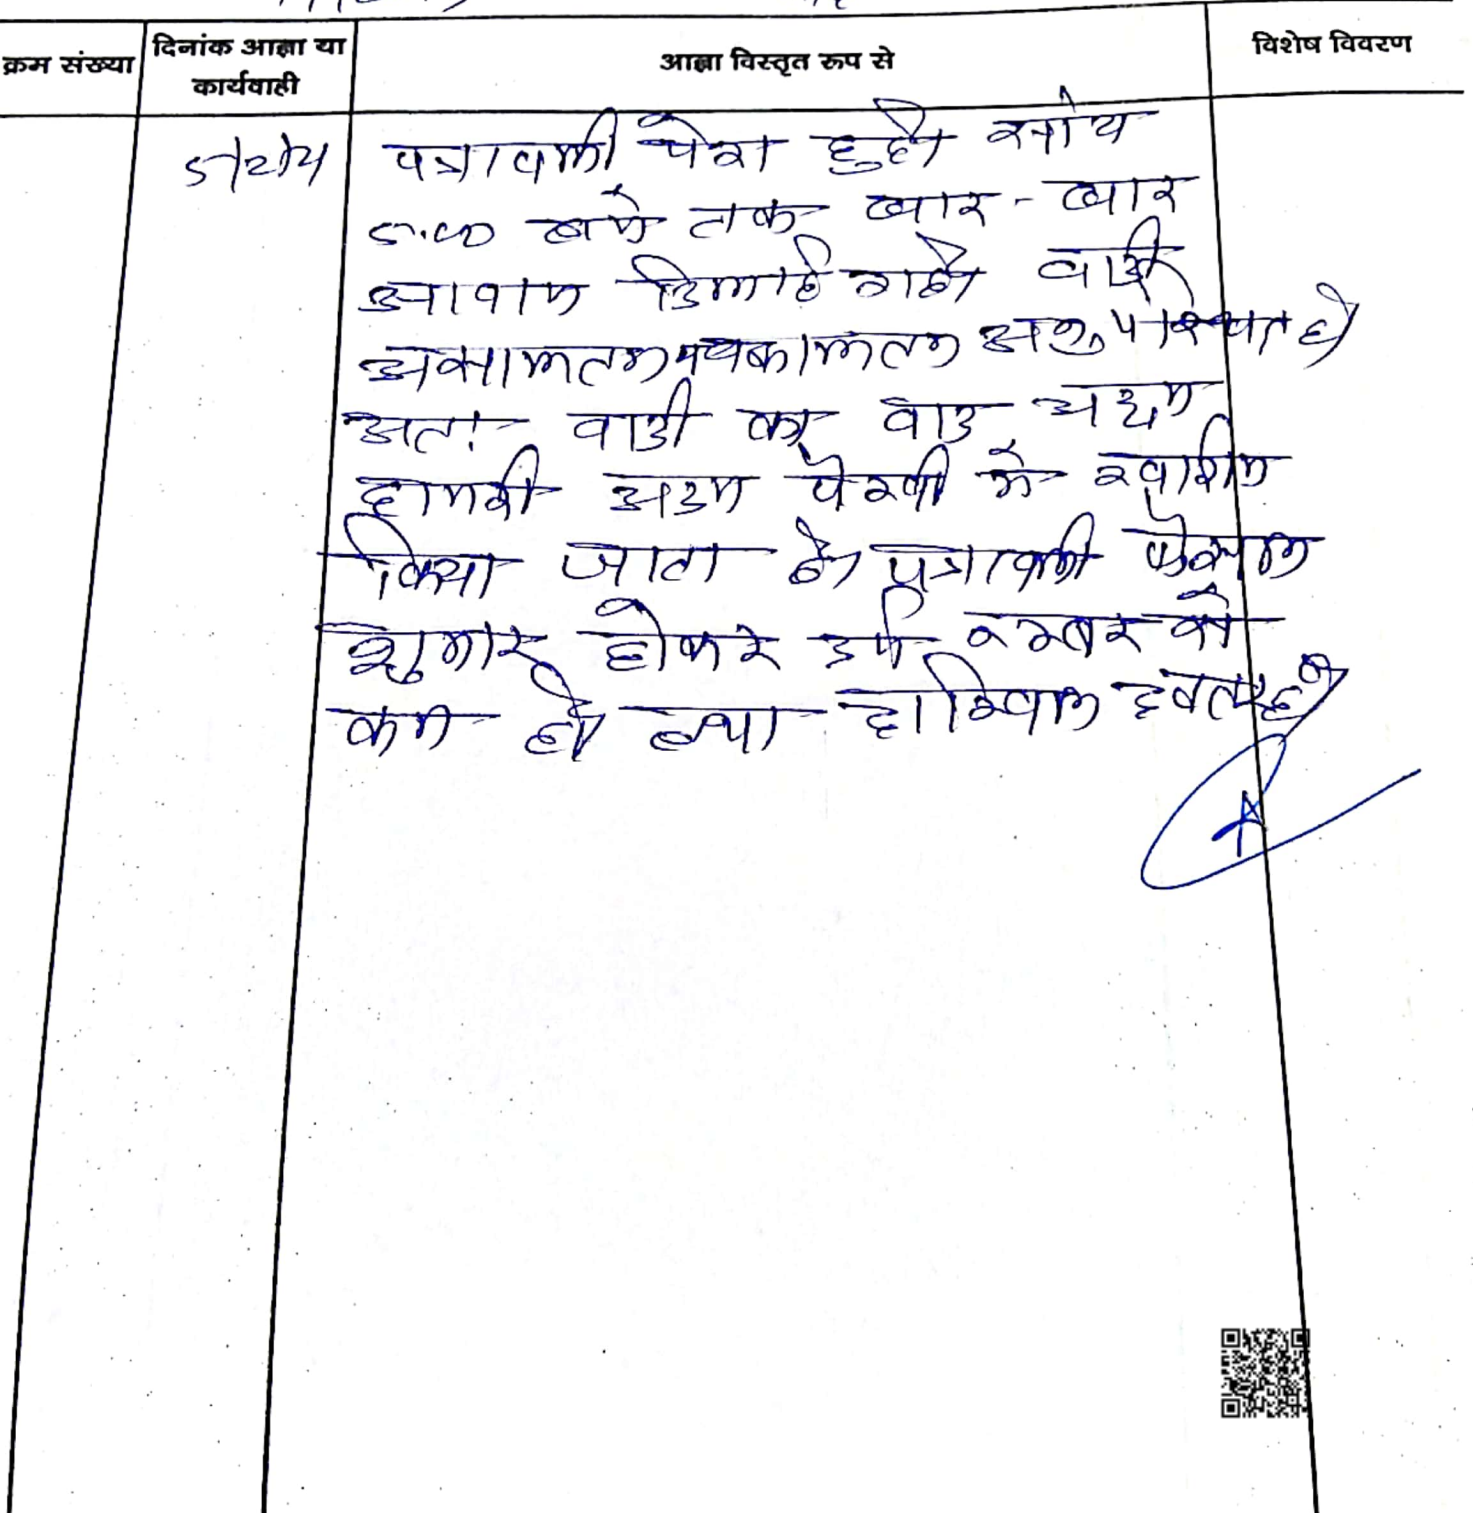 क्रम संख्या
दिनांक आज्ञा या
कार्यवाही
आज्ञा विस्तृत रूप से
विशेष विवरण
पत्रावली पेश हुई।
5.00 बजे तक बार-बार
आवाज दिलाई गई। वादी
असालतन वकालतन अनुपस्थित है।
अतः वादी का वाद अदम
हाजरी अदम पैरवी मे खारीज
किया जाता है। पत्रावली फैसल
शुमार होकर दर्ज नम्बर से
कम हो दाखिल दफ्तर हो।